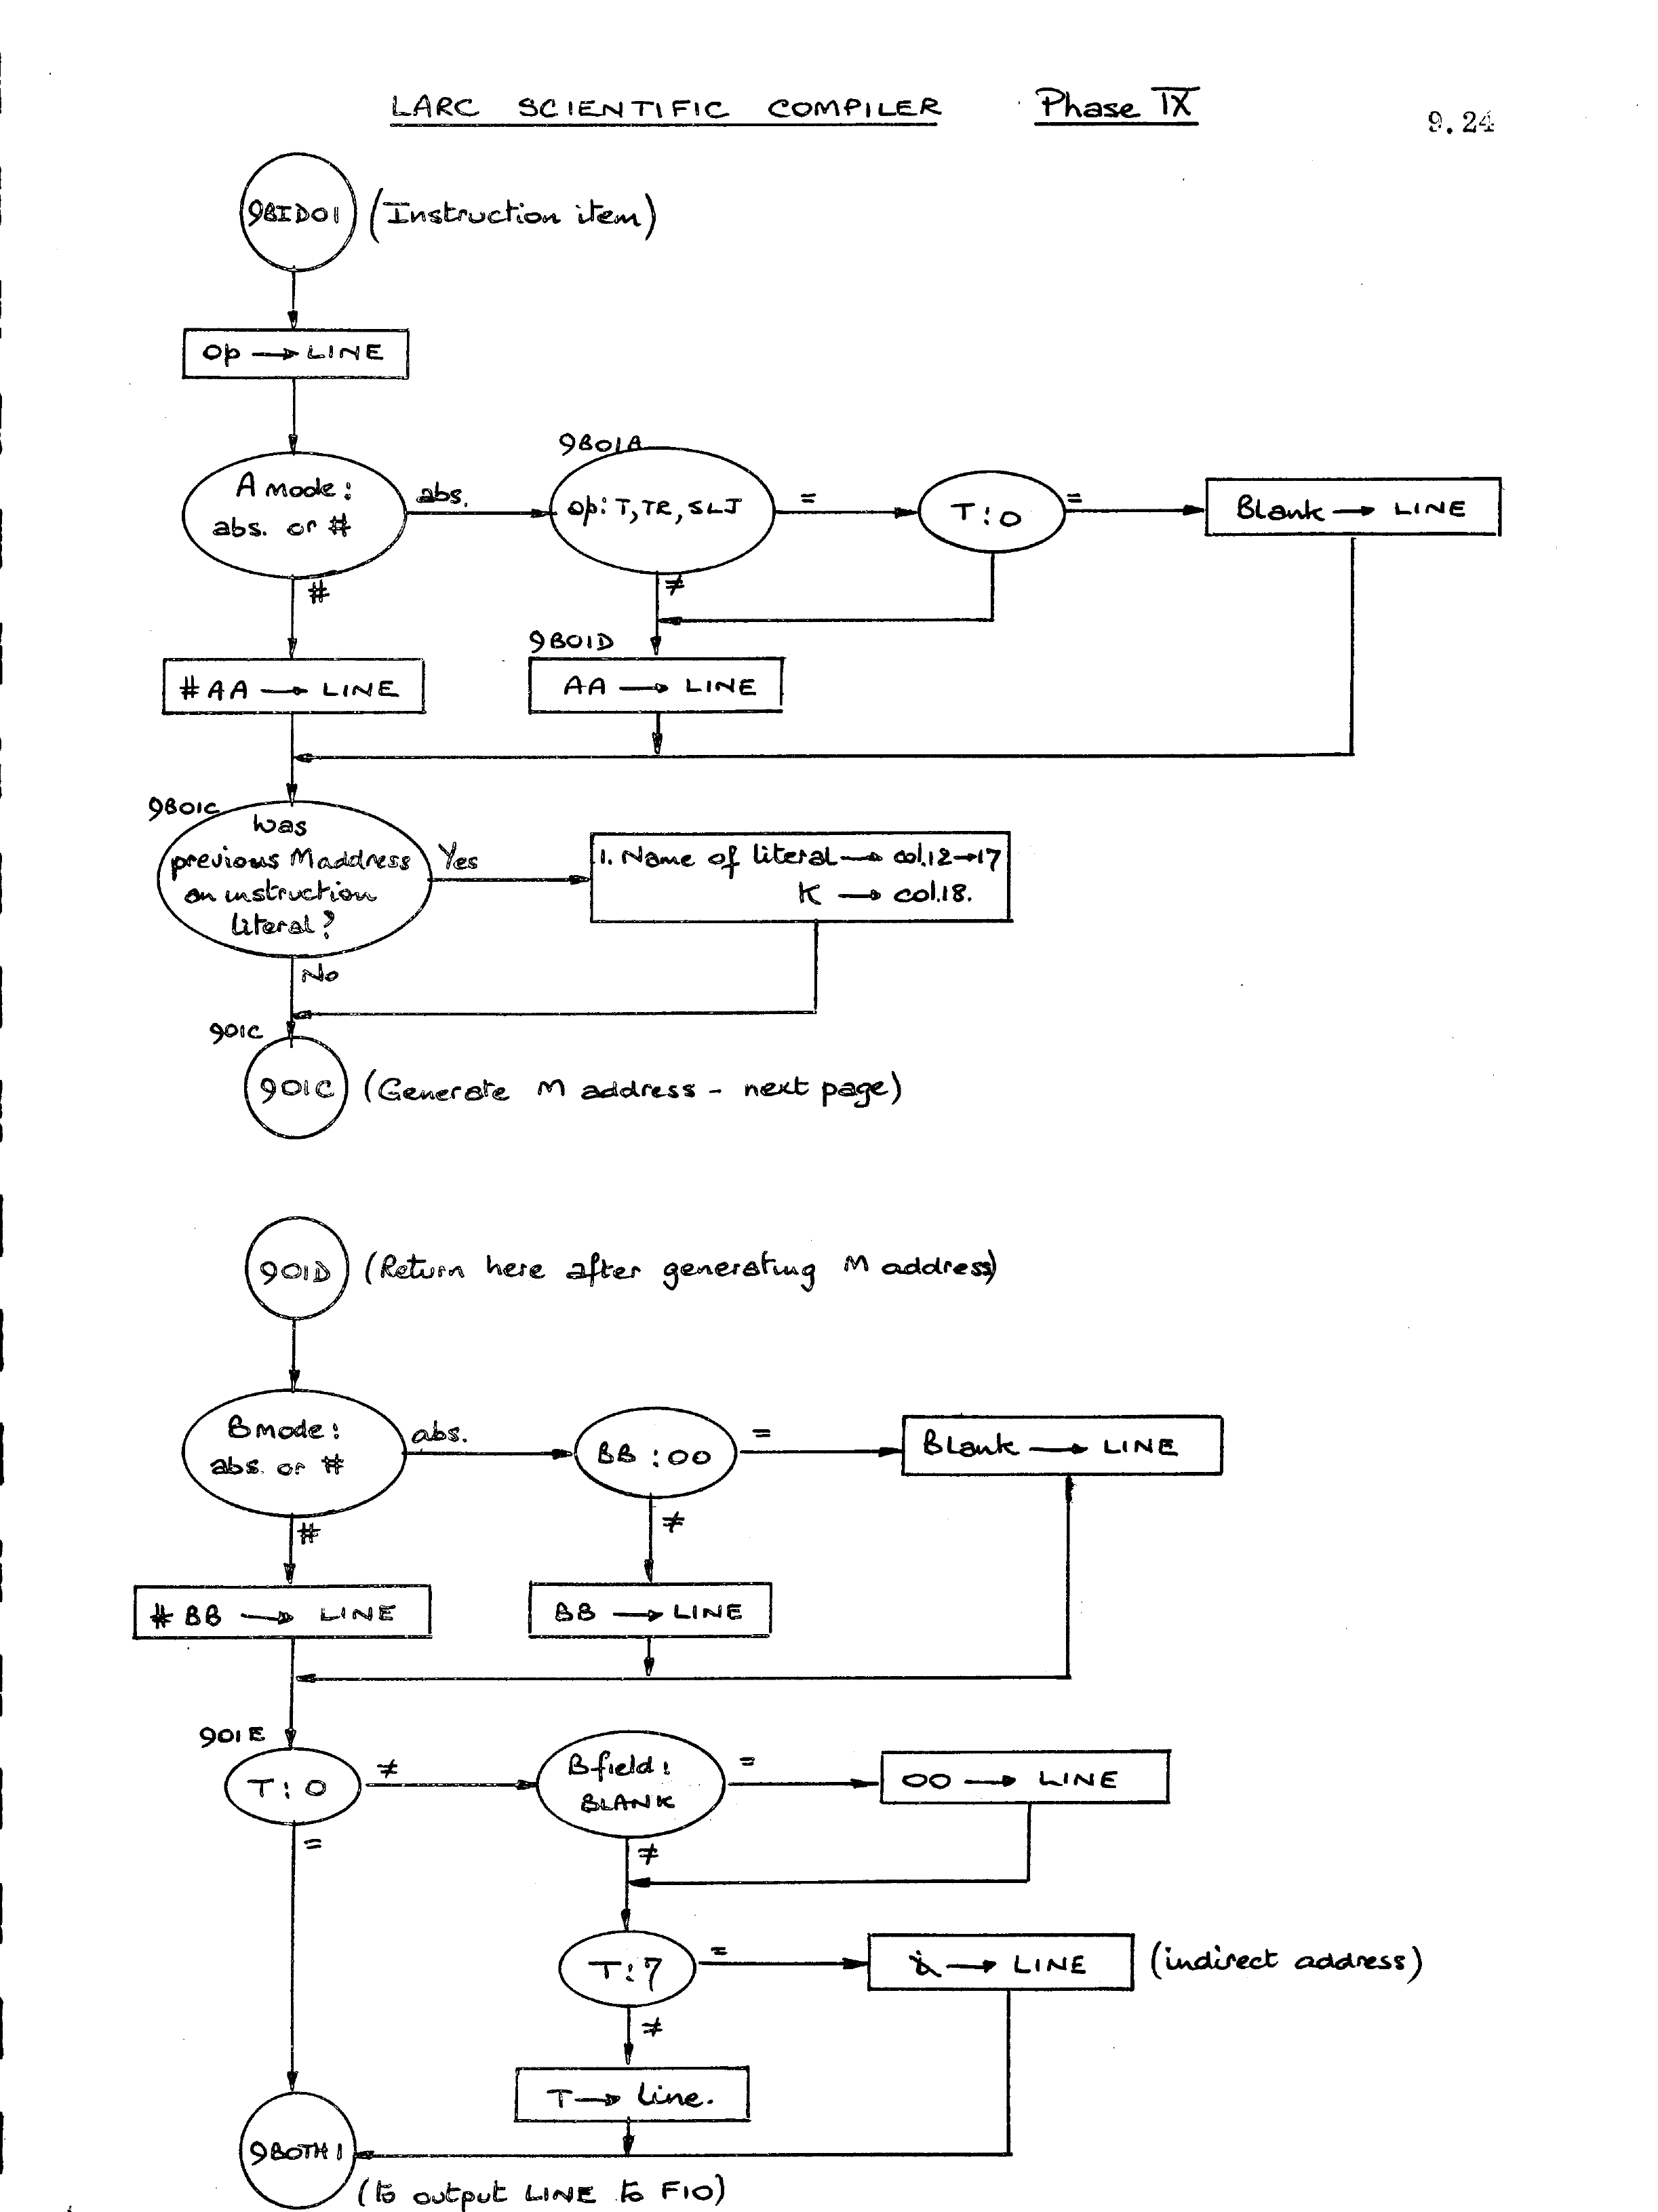 LARC SCIENTIFIC COMPILER Phase IX
9.24
9BID01 (Instruction item)
Op → LINE
9B01A
A mode:
abs. or #
abs.
Op: T, TR, SLJ
=
T:0
=
Blank → LINE
#
≠
9B01D
#AA → LINE
AA → LINE
9B01C
Was
previous M address
an instruction
literal?
Yes
1. Name of literal → col.12→17
K → col.18.
No
901C
901C (Generate M address - next page)
901D (Return here after generating M address)
B mode:
abs. or #
abs.
BB : 00
=
Blank → LINE
#
≠
#BB → LINE
BB → LINE
901E
T:0
≠
B field:
BLANK
=
00 → LINE
=
≠
T:7
=
→ LINE
(indirect address)
≠
T → Line.
9BOTH1
(to output LINE to F10)